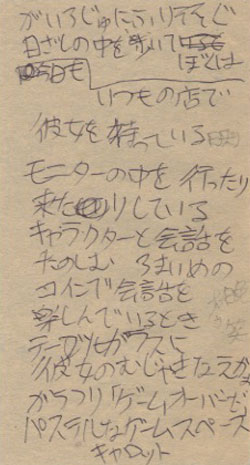 がいろじゅにふりそそぐ
日ざしの中を歩いて
ぼくは
今日も
いつもの店で
彼女を待っている
モニターの中を行ったり
来たりしている
キャラクターと会話を
たのしむ ろまいめの
コインで会話を
楽しんでいるとき
テーブルガラスに
彼女のむじゃきなえがお
がうつり「ゲームオーバーだ
パステルなゲームスペース
キャロット